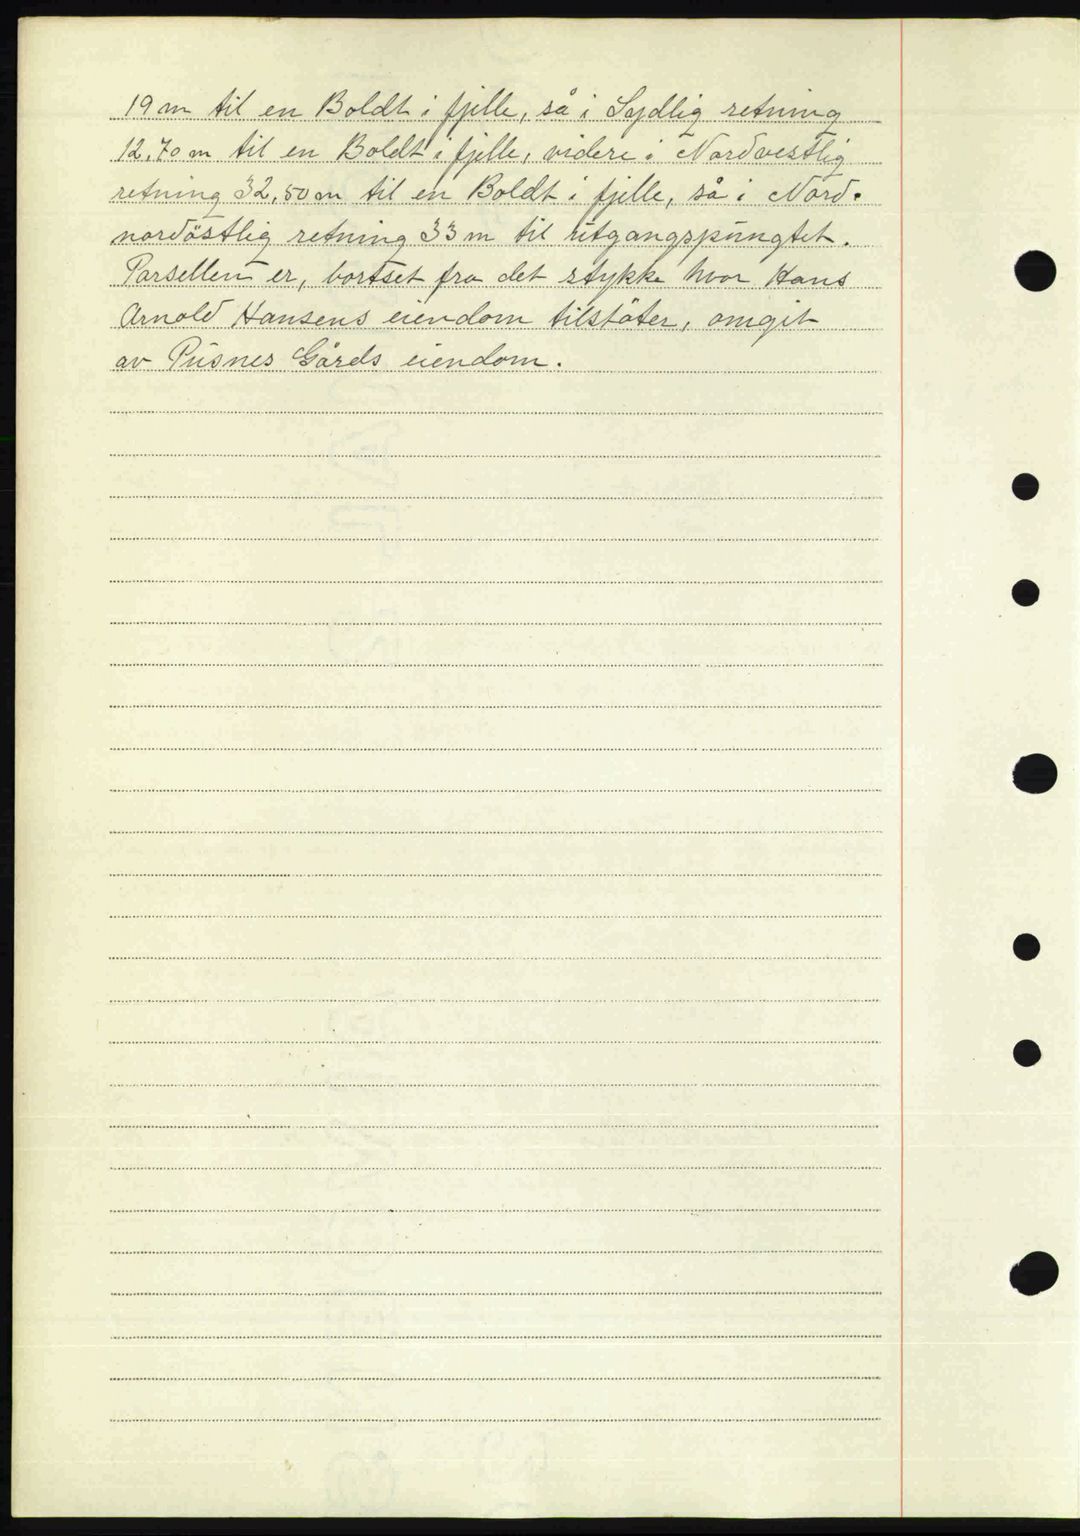 19 m til en Boldt i fjelle, så i Sydlig retning
12,70 m til en Boldt i fjelle, videre i Nordvestlig
retning 32,50 m til en Boldt i fjelle, så i Nord-
nordöstlig retning 33 m til utgangspungtet.
Parsellen er, bortset fra det stykke hvor Hans
Arnold Hansens eiendom tilstöter, omgit
av Pusnes Gårds eiendom.